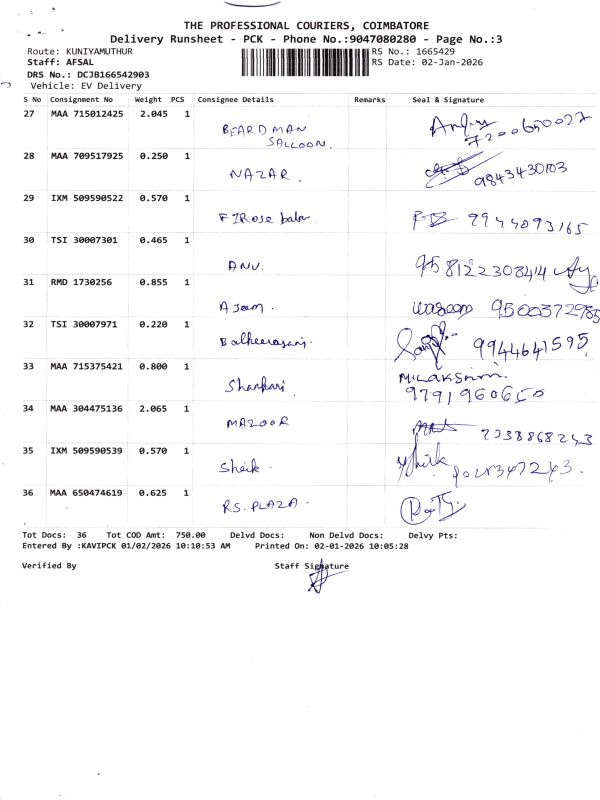 THE PROFESSIONAL COURIERS, COIMBATORE
Delivery Runsheet - PCK - Phone No.:9047080280 - Page No.:3
Route: KUNIYAMUTHUR RS No.: 1665429
Staff: AFSAL RS Date: 02-Jan-2026
DRS No.: DCJB166542903
Vehicle: EV Delivery
S No Consignment No Weight PCS Consignee Details Remarks Seal & Signature
27 MAA 715012425 2.045 1
BEARDMAN
SALLOON. 7200650077
28 MAA 709517925 0.250 1
NAZAR. 9843430103
29 IXM 509590522 0.570 1
FIRose 9944093165
30 TSI 30007301 0.465 1
ANU. 9581223084
31 RMD 1730256 0.855 1
9500372985
32 TSI 30007971 0.220 1
9944641595
33 MAA 715375421 0.800 1
Shankari M.LAKSHMI
9791960650
34 MAA 304475136 2.065 1
MAZOOR
35 IXM 509590539 0.570 1
Sheik.
36 MAA 650474619 0.625 1
RS. PLAZA.
Tot Docs: 36 Tot COD Amt: 750.00 Delvd Docs: Non Delvd Docs: Delvy Pts:
Entered By :KAVIPCK 01/02/2026 10:10:53 AM Printed On: 02-01-2026 10:05:28
Verified By Staff Signature